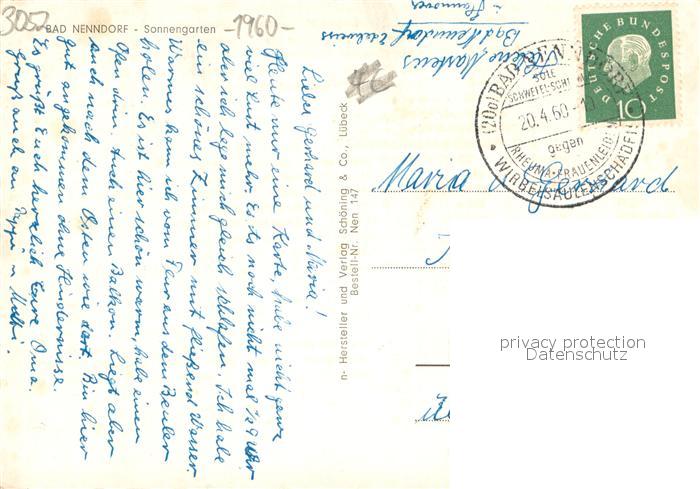 3052
BAD NENNDORF - Sonnengarten
-1960-
Liebe Gerhard und Maria!
Heute nur eine Karte, habe nicht ganz
viel Lust mehr. Es ist noch nicht mal ½ 9 Uhr
also ich leg mich gleich schlafen. Ich habe
ein schönes Zimmer mit fließend Wasser.
Warmes kann ich vom Flur aus dem Beuler
holen. Es ist hie schön warm, habe einen
Ofen drin. Auch einen Balkon. Liegt aber
auch nach dem Osten wie dort. Bin hier
gut angekommen ohne Hindernisse.
Es grüßt Euch herzlich Eure Oma.
Gruß auch an Pappi u Mutti.
n- Hersteller und Verlag Schöning & Co., Lübeck
Bestell-Nr. Nen 147
Helene Martens
Bad Nenndorf
b/ Hannover
DEUTSCHE BUNDESPOST
10
(20a) BAD NENNDORF
SOLE
SCHWEFEL-SCHL
20.4.60-10
gegen
RHEUMA-FRAUENLEIDEN
WIRBELSÄULENSCHÄDEN
Maria u Gerhard
privacy protection
Datenschutz